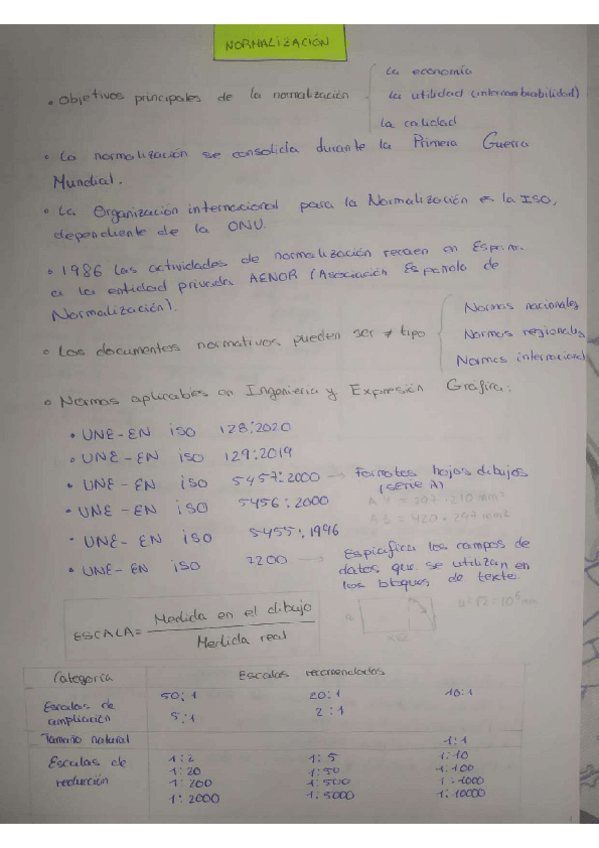 NORMALIZACIÓN
• Objetivos principales de la normalización
la economía
la utilidad (intercambiabilidad)
la calidad
• La normalización se consolida durante la Primera Guerra
Mundial.
• La Organización internacional para la Normalización es la ISO,
dependiente de la ONU.
• 1986 las actividades de normalización recaen en España
a la entidad privada AENOR (Asociación Española de
Normalización).
• Los documentos normativos pueden ser ≠ tipo
Normas nacionales
Normas regionales
Normas internacional
• Normas aplicables en Ingeniería y Expresión Gráfica:
• UNE-EN iSO 128:2020
• UNE-EN iSO 129:2019
• UNE-EN iSO 5457:2000 → Formatos hojas dibujos
(serie A)
A4 = 297×210 mm²
A3 = 420×297 mm²
• UNE-EN iSO 5456:2000
• UNE-EN iSO 5455:1996
• UNE-EN iSO 7200 → Espicifica los campos de
datos que se utilizan en
los bloques de texto
ESCALA = Medida en el dibujo
Medida real
Categoría Escalas recomendadas
Escalas de ampliación 50:1 20:1 10:1
5:1 2:1
Tamaño natural 1:1
Escalas de reducción 1:2 1:5 1:10
1:20 1:50 1:100
1:200 1:500 1:1000
1:2000 1:5000 1:10000